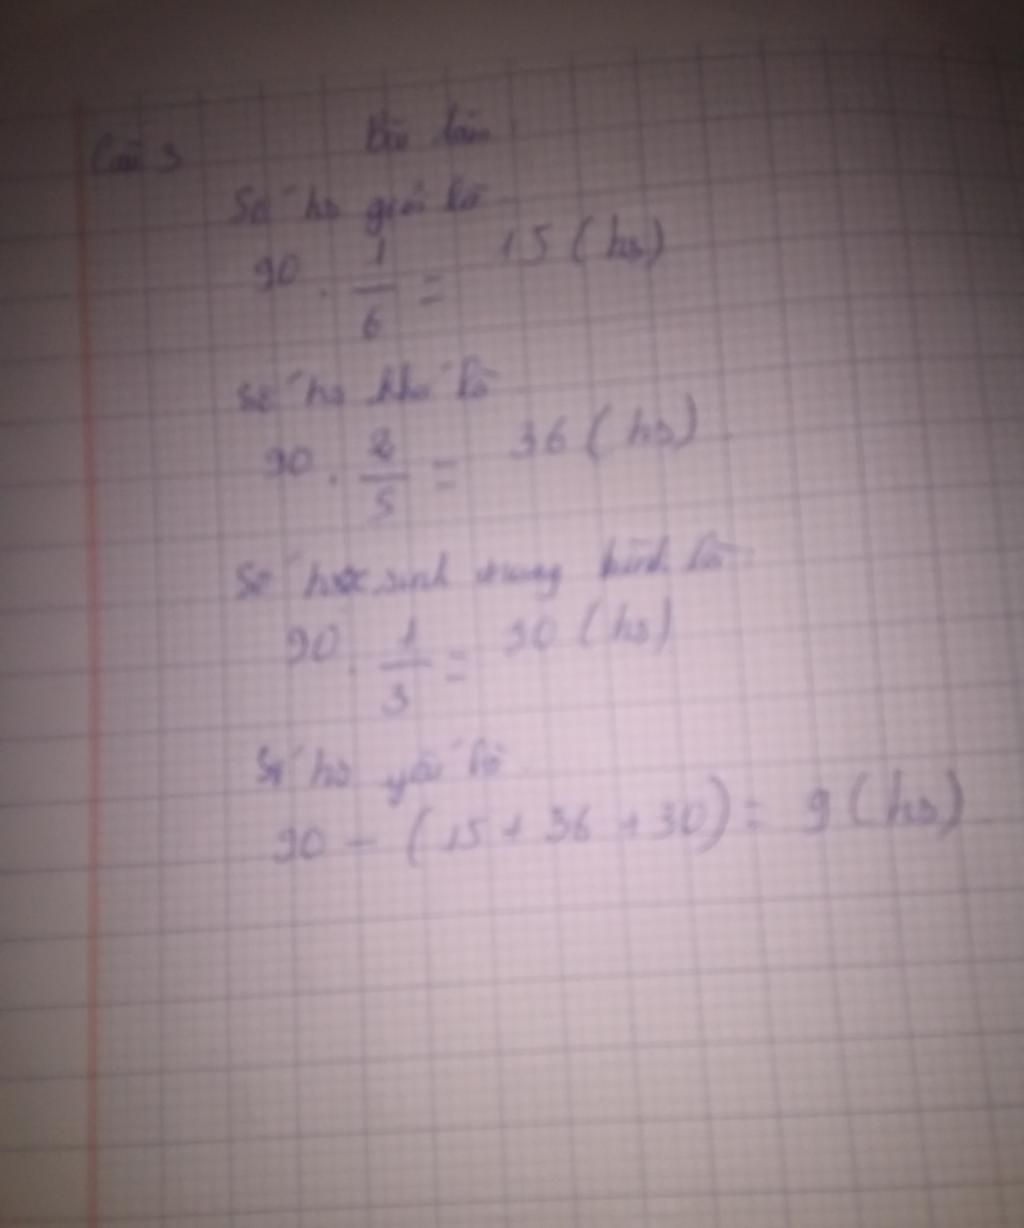 Câu 3 Bài làm
Số hs giỏi là
90 . 1/6 = 15 (hs)
Số hs khá là
90 . 2/5 = 36 (hs)
Số học sinh trung bình là
90 . 1/3 = 30 (hs)
Số hs yếu là
90 - (15 + 36 + 30) = 9 (hs)